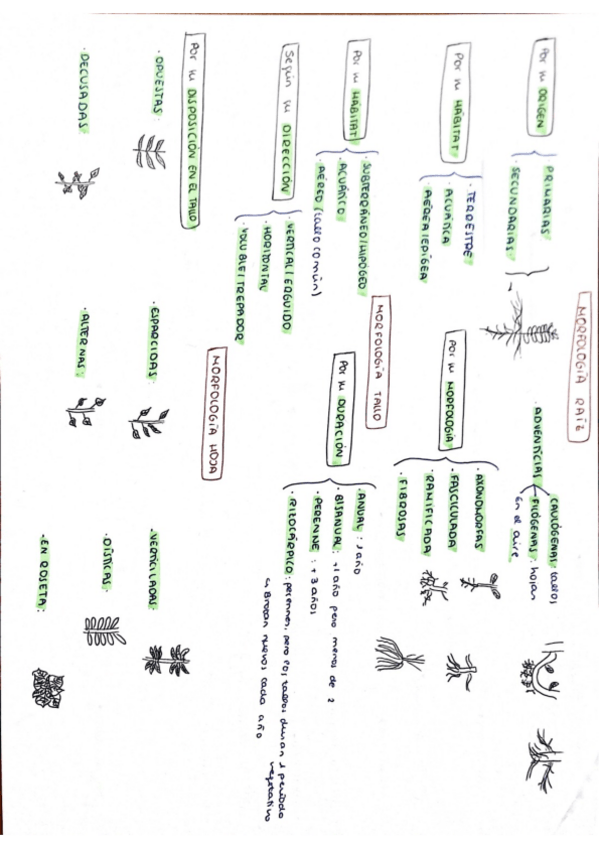 MORFOLOGÍA RAÍZ
Por su ORIGEN
PRIMARIAS
SECUNDARIAS
ADVENTICIAS
CAULÓGENAS: tallos
FILÓGENAS: hojas
En el aire
Por su HÁBITAT
TERRESTRE
ACUÁTICA
AÉREA/EPÍGEA
Por su MORFOLOGÍA
AXONOMORFAS
FASCICULADA
RAMIFICADA
FIBROSAS
MORFOLOGÍA TALLO
Por su HÁBITAT
SUBTERRÁNEO/HIPÓGEO
ACUÁTICO
AÉREO (tallo común)
Según su DIRECCIÓN
VERTICAL/ERGUIDO
HORIZONTAL
VOLUBLE/TREPADOR
Por su DURACIÓN
ANUAL: 1 año
BISANUAL: +1 año pero menos de 2
PERENNE: +3 años
RIZOCÁRPICO: perennes, pero los tallos duran 1 período vegetativo
↳ Brotan nuevos cada año
MORFOLOGÍA HOJA
Por su DISPOSICIÓN EN EL TALLO
· OPUESTAS:
· ESPARCIDAS:
· VERTICILADAS:
· DECUSADAS
· ALTERNAS:
· DÍSTICAS:
· EN ROSETA: